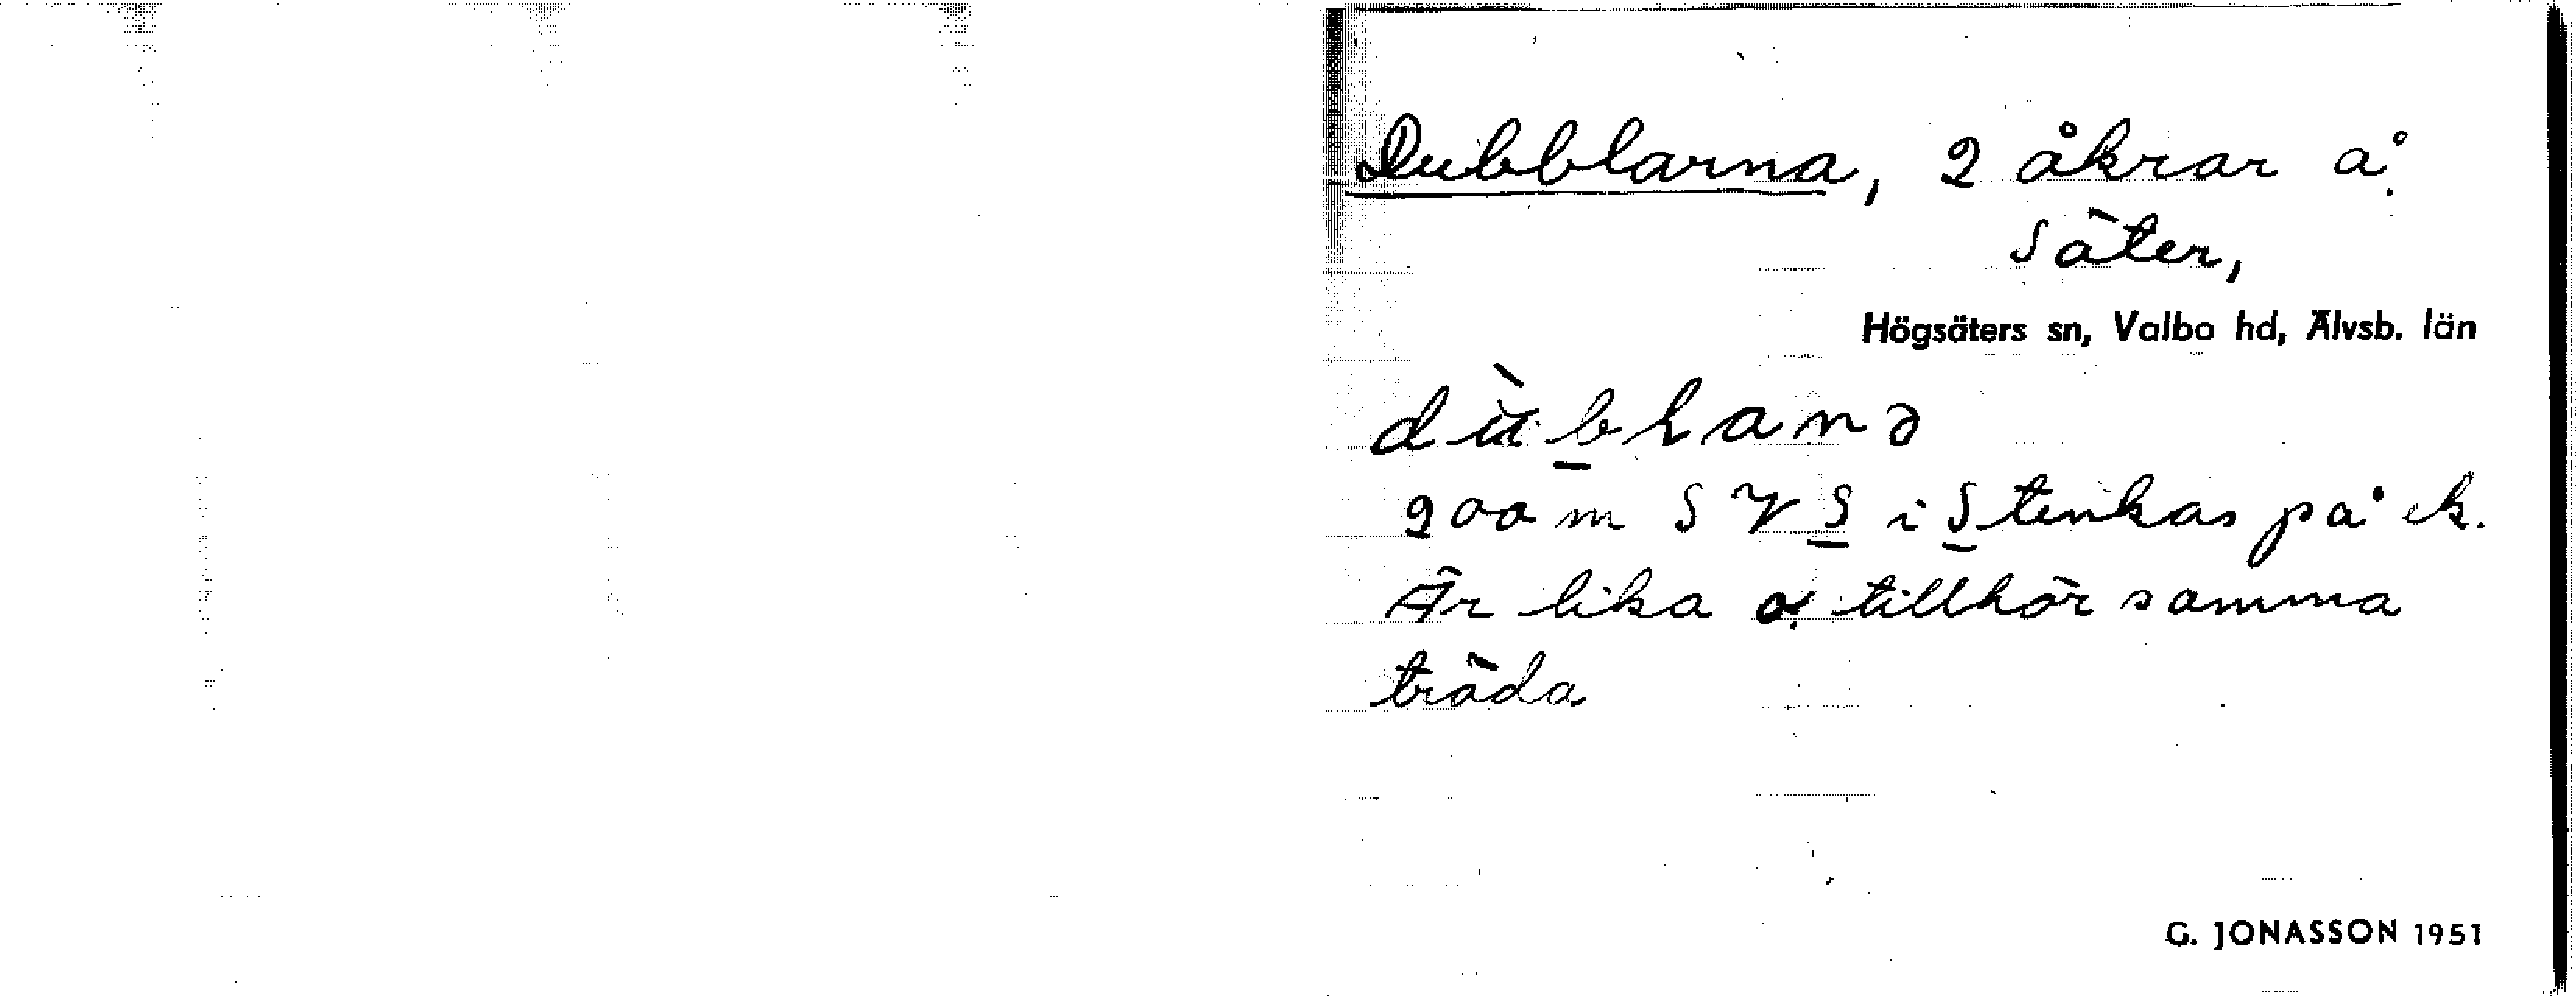 Dubblarna, 2 åkrar å
Säter,
Högsäters sn, Valbo hd, Älvsb. län
200 m S V S i Stenkas på ek.
Är lika o. tillhör samma
träda
G. JONASSON 1951